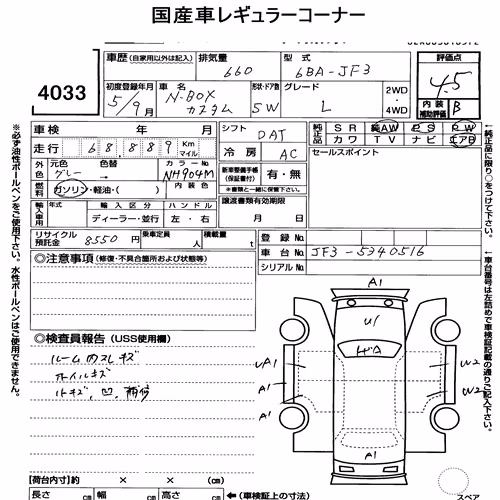 国産車レギュラーコーナー
4033
車歴 (自家用以外は記入) 排気量 型式 評価点
660 6BA-JF3 4.5
初度登録年月 車名 形状・ドア数 グレード 2WD・4WD 内装補助評価 B
5/9月 N-BOX カスタム 5W L
車検 年 月 シフト DAT 純正品 SR AW PS PW
68,889 Km マイル 冷房 AC カワ TV ナビ エアB
外色 元色 色替 カラーNo セールスポイント
グレー → NH904M 新車整備手帳(保証書付) 有・無
※書類と一緒に保管下さい。
燃料 ガソリン・軽油・( ) 内装色 譲渡書類有効期限
輸入車用 年式 輸入区分 ハンドル 月 日
ディーラー・並行 左・右
リサイクル預託金 8550円 乗車定員 人 積載量 t 登録No
車台No JF3-5340516
シリアルNo
◎注意事項 (修復・不具合箇所および状態等)
◎検査員報告 (USS使用欄)
ルーム内スレキズ
ホイルキズ
A1
U1
A1
A1
A1
W2
W2
A1
【荷台内寸】 × ×
長さ cm 幅 cm 高さ cm ←(車検証上の寸法)
スペア
※必ず油性ボールペンをご使用下さい。水性ボールペンはご使用できません。
←純正品に限り○をつけて下さい
←車台番号は左詰めで車検証記載の通りご記入下さい。